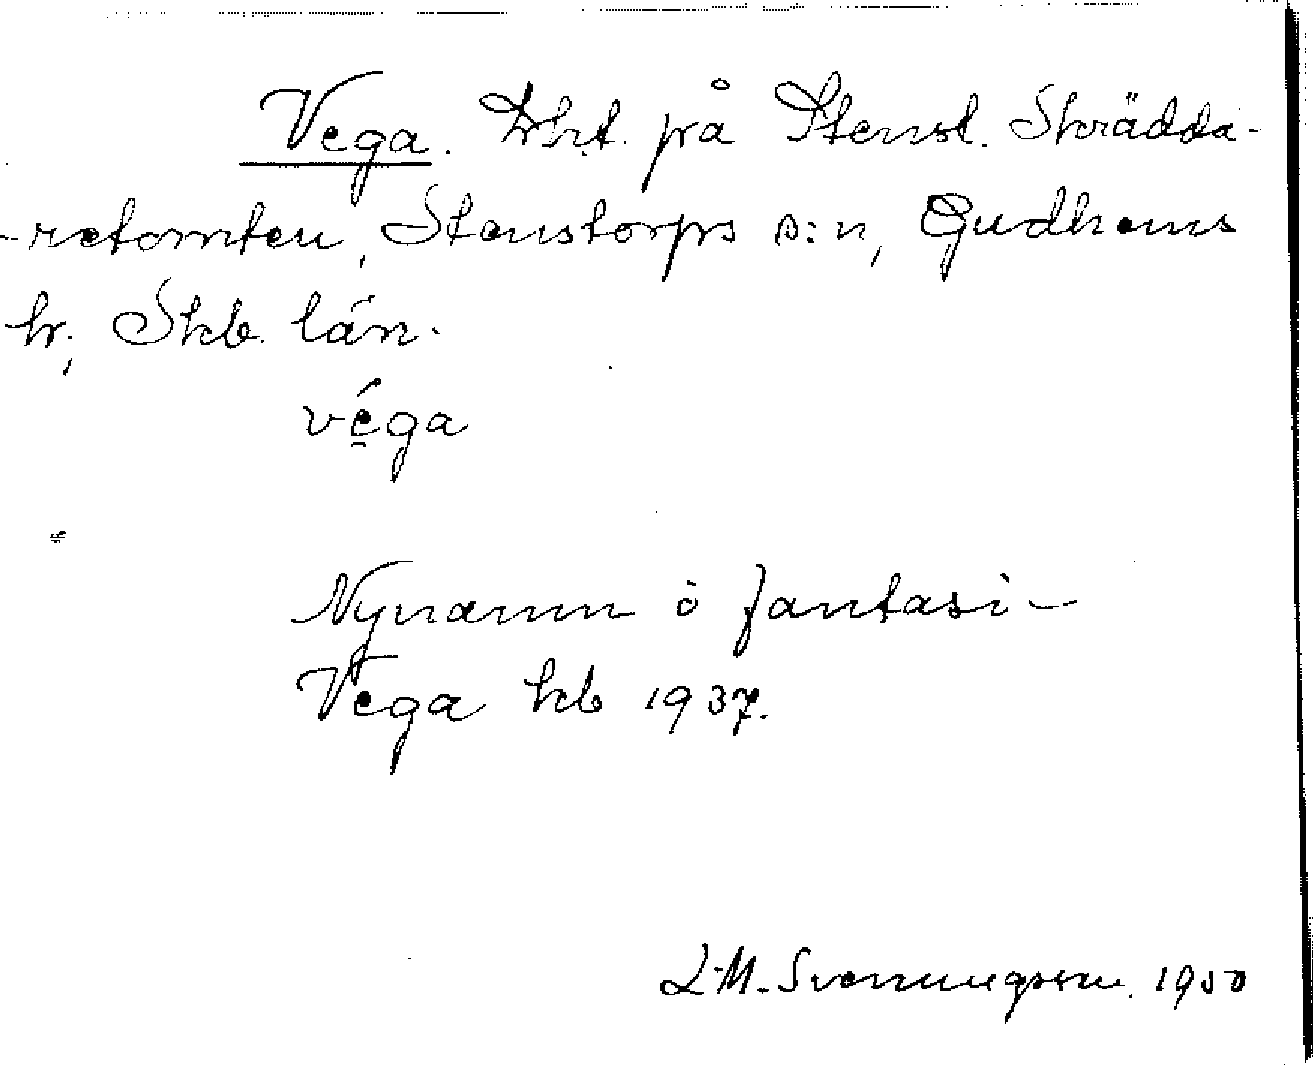 Vega. Lht. på Stenst. Skrädda-
-retomten, Stenstorps s:n, Gudhems
hr, Skb. län.
véga
Nynamn o fantasi-
Vega kb 1937.
L-M. Svenningsson. 1950